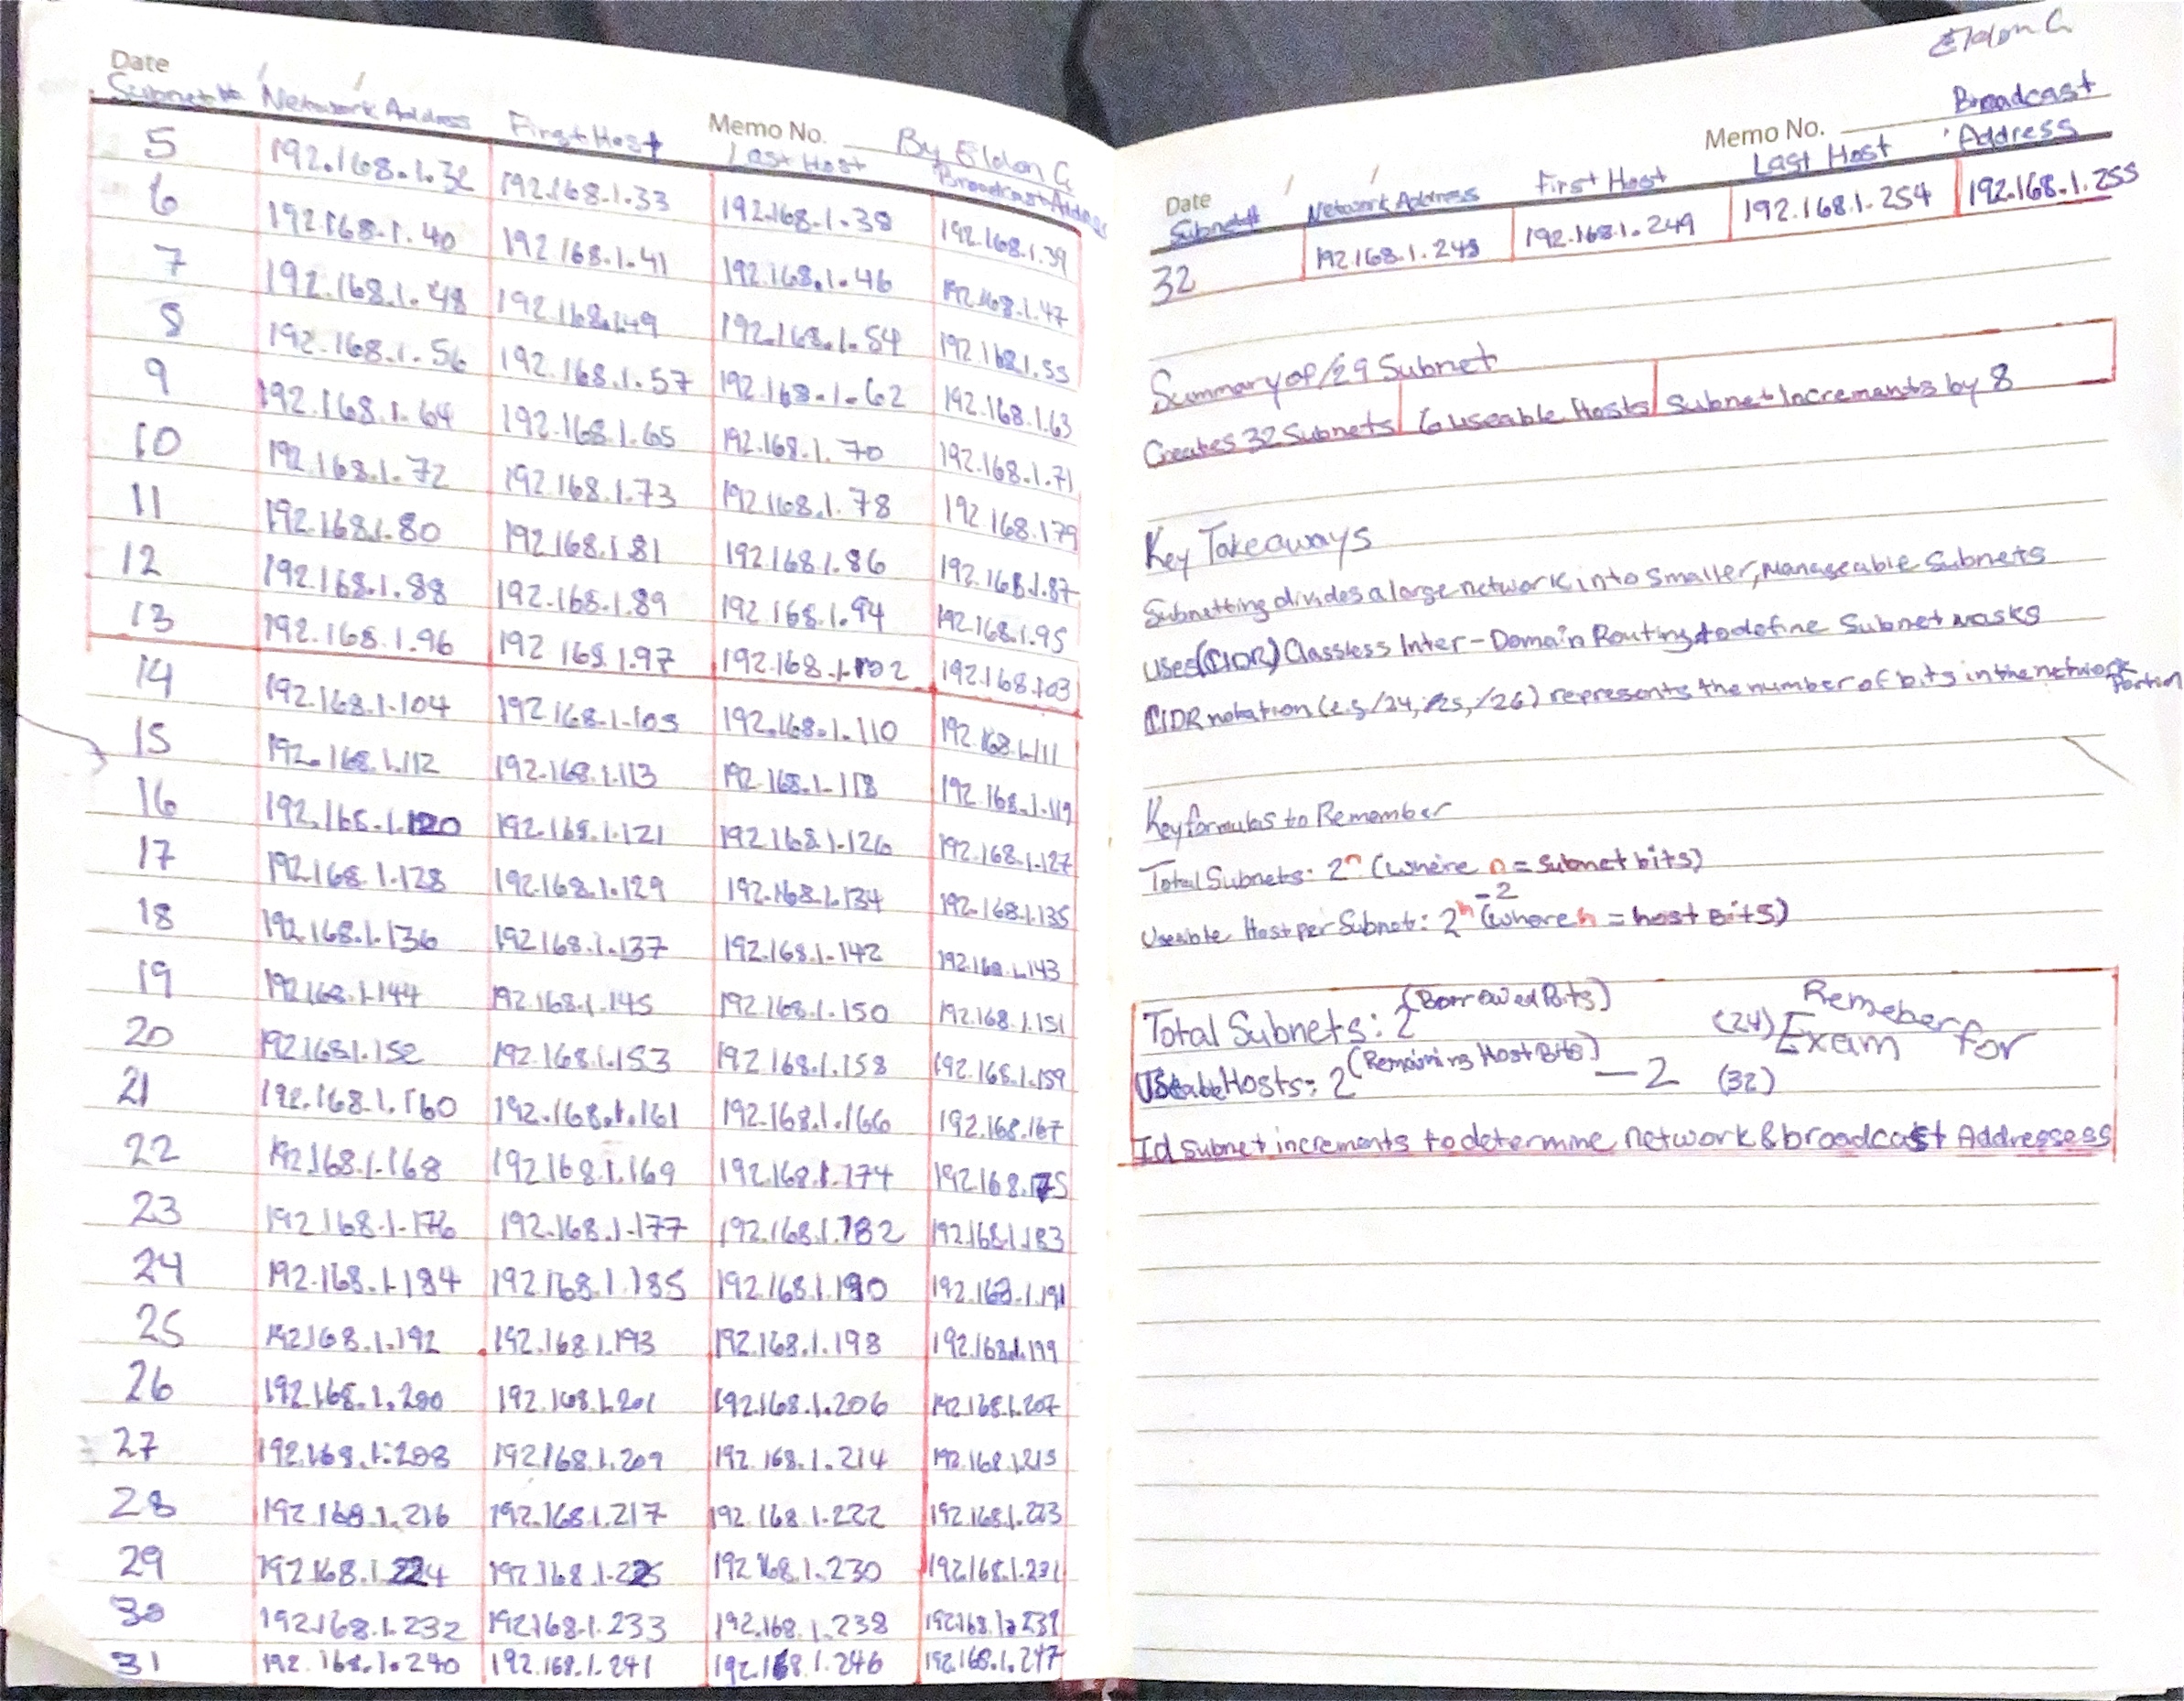 Date
Memo No. By Eldon G
Subnet # Network Address First Host Last Host Broadcast Address
5 192.168.1.32 192.168.1.33 192.168.1.38 192.168.1.39
6 192.168.1.40 192.168.1.41 192.168.1.46 192.168.1.47
7 192.168.1.48 192.168.1.49 192.168.1.54 192.168.1.55
8 192.168.1.56 192.168.1.57 192.168.1.62 192.168.1.63
9 192.168.1.64 192.168.1.65 192.168.1.70 192.168.1.71
10 192.168.1.72 192.168.1.73 192.168.1.78 192.168.179
11 192.168.1.80 192.168.1.81 192.168.1.86 192.168.1.87
12 192.168.1.88 192.168.1.89 192.168.1.94 192.168.1.95
13 192.168.1.96 192.168.1.97 192.168.1.102 192.168.103
14 192.168.1.104 192.168.1.105 192.168.1.110 192.168.1.111
15 192.168.1.112 192.168.1.113 192.168.1.118 192.168.1.119
16 192.168.1.120 192.168.1.121 192.168.1.126 192.168.1.127
17 192.168.1.128 192.168.1.129 192.168.1.134 192.168.1.135
18 192.168.1.136 192.168.1.137 192.168.1.142 192.168.1.143
19 192.168.1.144 192.168.1.145 192.168.1.150 192.168.1.151
20 192.168.1.152 192.168.1.153 192.168.1.158 192.168.1.159
21 192.168.1.160 192.168.1.161 192.168.1.166 192.168.167
22 192.168.1.168 192.168.1.169 192.168.1.174 192.168.175
23 192.168.1.176 192.168.1.177 192.168.1.182 192.168.1.183
24 192.168.1.184 192.168.1.185 192.168.1.190 192.168.1.191
25 192.168.1.192 192.168.1.193 192.168.1.198 192.168.1.199
26 192.168.1.200 192.168.1.201 192.168.1.206 192.168.1.207
27 192.168.1.208 192.168.1.209 192.168.1.214 192.168.1.215
28 192.168.1.216 192.168.1.217 192.168.1.222 192.168.1.223
29 192.168.1.224 192.168.1.225 192.168.1.230 192.168.1.231
30 192.168.1.232 192.168.1.233 192.168.1.238 192.168.1.239
31 192.168.1.240 192.168.1.241 192.168.1.246 192.168.1.247
Eldon G.
Date
Memo No.
Subnet# Network Address First Host Last Host Broadcast Address
32 192.168.1.248 192.168.1.249 192.168.1.254 192.168.1.255
Summary of /29 Subnet
Creates 32 Subnets 6 useable Hosts Subnet Increments by 8
Key Takeaways
Subnetting divides a large network into smaller, Manageable Subnets
Uses (CIDR) Classless Inter-Domain Routing to define Subnet masks
CIDR notation (e.g /24, /25, /26) represents the number of bits in the network Portion
Key formulas to Remember
Total Subnets: 2^n (where n = subnet bits)
Useable Host per Subnet: 2^h -2 (where h = host Bits)
Total Subnets: 2^(Borrowed Bits) (24) Remeber for Exam
Useable Hosts: 2^(Remaining Host Bits) - 2 (32)
Id subnet increments to determine network & broadcast Addressess